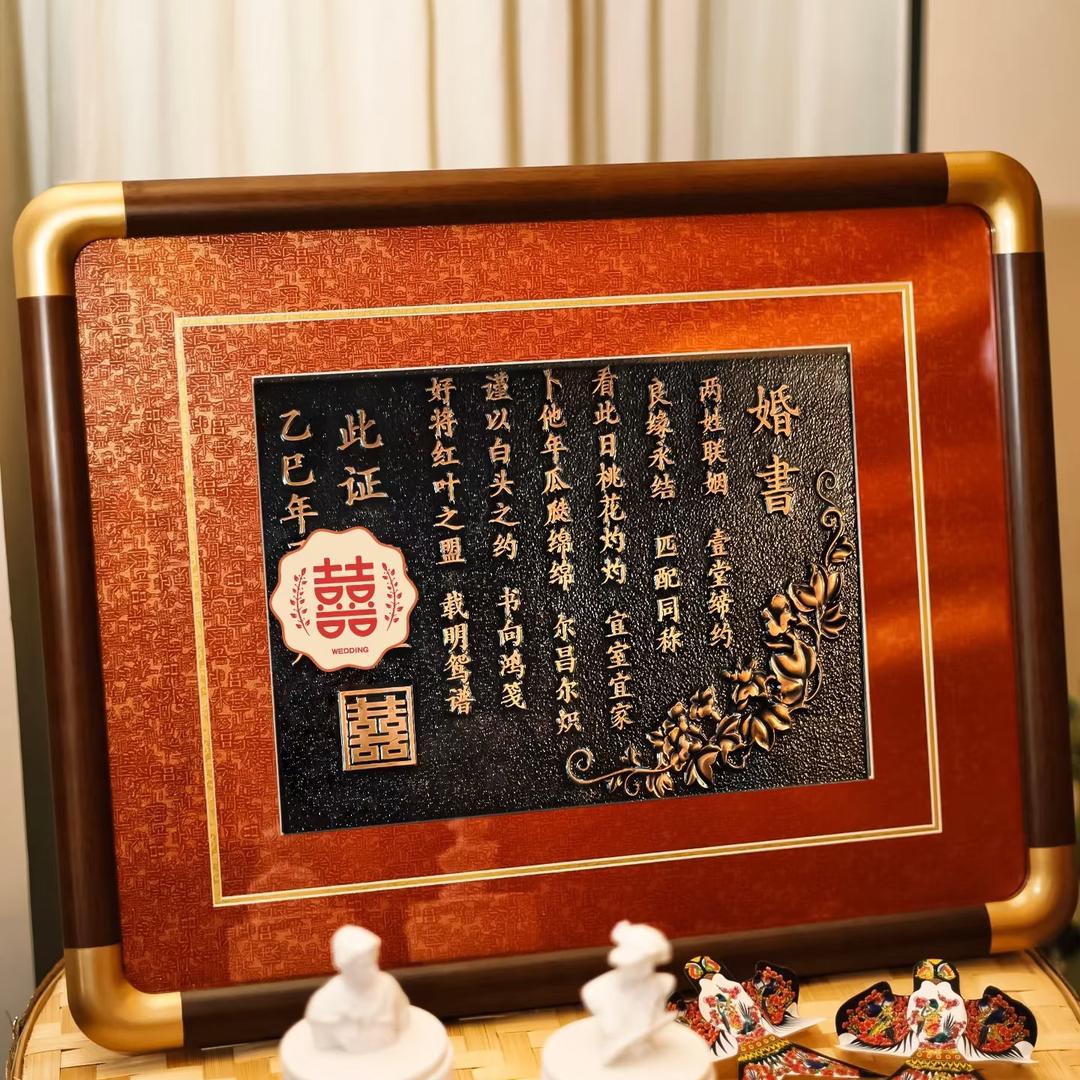 婚書
两姓联姻 壹堂缔约
良缘永结 匹配同称
看此日桃花灼灼 宜室宜家
卜他年瓜瓞绵绵 尔昌尔炽
谨以白头之约 书向鸿笺
好将红叶之盟 载明鸳谱
此证
乙巳年
囍
WEDDING
囍